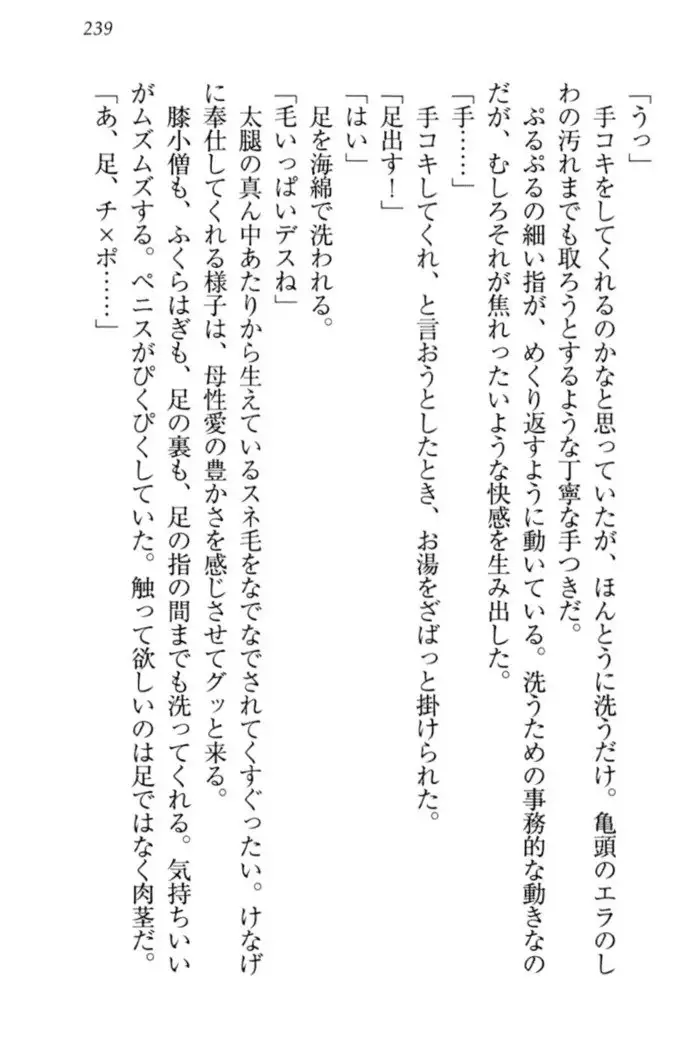 239
「うっ」
手コキをしてくれるのかなと思っていたが、ほんとうに洗うだけ。亀頭のエラのし
わの汚れまでも取ろうとするような丁寧な手つきだ。
ぷるぷるの細い指が、めくり返すように動いている。洗うための事務的な動きなの
だが、むしろそれが焦れったいような快感を生み出した。
「手……」
手コキしてくれ、と言おうとしたとき、お湯をざばっと掛けられた。
「足出す！」
「はい」
足を海綿で洗われる。
「毛いっぱいデスね」
太腿の真ん中あたりから生えているスネ毛をなでなでされてくすぐったい。けなげ
に奉仕してくれる様子は、母性愛の豊かさを感じさせてグッと来る。
膝小僧も、ふくらはぎも、足の裏も、足の指の間までも洗ってくれる。気持ちいい
がムズムズする。ペニスがぴくぴくしていた。触って欲しいのは足ではなく肉茎だ。
「あ、足、チ×ポ……」